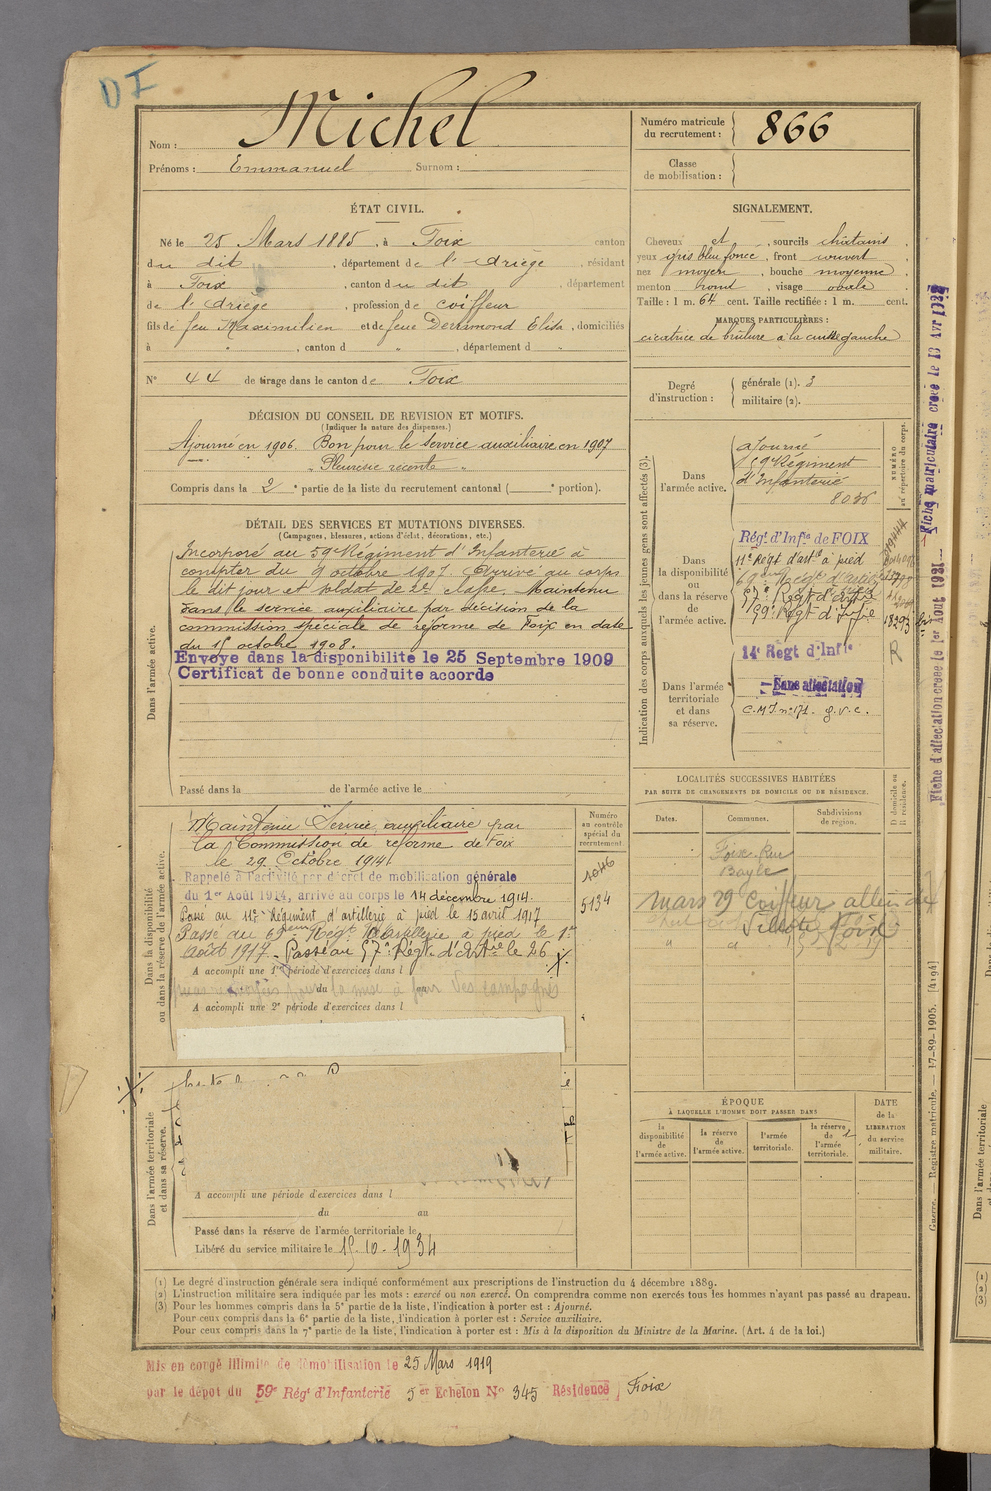 DI
Nom : Michel
Prénoms : Emmanuel Surnom :
Numéro matricule du recrutement : 866
Classe de mobilisation :
ÉTAT CIVIL.
Né le 25 Mars 1885, à Foix canton
du dit, département de l'Ariège, résidant
à Foix, canton du dit département
de l'Ariège, profession de coiffeur
fils de feu Maximilien et de feue Elisa, domiciliés
à " , canton d " , département d "
N° 44 de tirage dans le canton de Foix
SIGNALEMENT.
Cheveux et , sourcils châtains,
yeux gris bleu foncé, front couvert,
nez moyen, bouche moyenne,
menton rond, visage ovale,
Taille : 1 m. 64 cent. Taille rectifiée : 1 m. cent.
MARQUES PARTICULIÈRES :
cicatrice de brûlure à la cuisse gauche
Degré d'instruction :
générale (1). 3
militaire (2).
DÉCISION DU CONSEIL DE REVISION ET MOTIFS.
(Indiquer la nature des dispenses.)
Ajourné en 1906. Bon pour le Service auxiliaire en 1907
" Pleurésie récente "
Compris dans la 2e partie de la liste du recrutement cantonal ( e portion).
DÉTAIL DES SERVICES ET MUTATIONS DIVERSES.
(Campagnes, blessures, actions d'éclat, décorations, etc.)
Dans l'armée active.
Incorporé au 59e Régiment d'Infanterie à
compter du 9 octobre 1907. Arrivé au corps
le dit jour et soldat de 2e classe. Maintenu
dans le service auxiliaire par décision de la
commission spéciale de réforme de Foix en date
du 15 octobre 1908.
Envoye dans la disponibilite le 25 Septembre 1909
Certificat de bonne conduite accorde
Passé dans la de l'armée active le
Indication des corps auxquels les jeunes gens sont affectés (3).
NUMÉRO au répertoire du corps.
Dans l'armée active.
ajourné
59e Régiment
d'Infanterie
8036
Dans la disponibilité ou dans la réserve de l'armée active.
Régt d'Infie de FOIX
11e Régt d'artie à pied
57e Régt d'Artie
59e Régt d'Infie
18293
R
Dans l'armée territoriale et dans sa réserve.
14e Régt d'Infie
Sans affectation
C.M.I. n° 171. g.v.c.
Fiche d'affectation créée le 1er Aout 1931
Fiche matriculaire créée le
LOCALITÉS SUCCESSIVES HABITÉES
PAR SUITE DE CHANGEMENTS DE DOMICILE OU DE RÉSIDENCE.
D domicile ou R résidence.
Dates. Communes. Subdivisions de région.
Foix Rue
Bayle
mars 29 Coiffeur allée de
Villote Foix
Dans la disponibilité ou dans la réserve de l'armée active.
Numéro au contrôle spécial du recrutement
1046
5134
Maintenu Service auxiliaire par
la Commission de réforme de Foix
le 29 Octobre 1914
Rappelé à l'activité par décret de mobilisation générale
du 1er Août 1914, arrivé au corps le 14 décembre 1914.
Passé au 11e Régiment d'artillerie à pied le 15 avril 1917
Passé au Régt d'Artillerie à pied le 1er
Août 1917. Passé au 57e Régt d'Artie le 26 .X.
A accompli une 1re période d'exercices dans l
du
la mise à jour des campagnes
A accompli une 2e période d'exercices dans l
Dans l'armée territoriale et dans sa réserve.
A accompli une période d'exercices dans l
du au
Passé dans la réserve de l'armée territoriale le
Libéré du service militaire le 15-10-1934
ÉPOQUE
À LAQUELLE L'HOMME DOIT PASSER DANS
la disponibilité de l'armée active.
la réserve de l'armée active.
l'armée territoriale.
la réserve de l'armée territoriale.
DATE de la LIBÉRATION du service militaire.
Guerre. — Registre matricule. — 17-89-1905. [4194]
(1) Le degré d'instruction générale sera indiqué conformément aux prescriptions de l'instruction du 4 décembre 1889.
(2) L'instruction militaire sera indiquée par les mots : exercé ou non exercé. On comprendra comme non exercés tous les hommes n'ayant pas passé au drapeau.
(3) Pour les hommes compris dans la 5e partie de la liste, l'indication à porter est : Ajourné.
Pour ceux compris dans la 6e partie de la liste, l'indication à porter est : Service auxiliaire.
Pour ceux compris dans la 7e partie de la liste, l'indication à porter est : Mis à la disposition du Ministre de la Marine. (Art. 4 de la loi.)
Mis en congé illimité de démobilisation le 25 Mars 1919
par le dépôt du 59e Régt d'Infanterie 5er Echelon N° 345 Résidence Foix